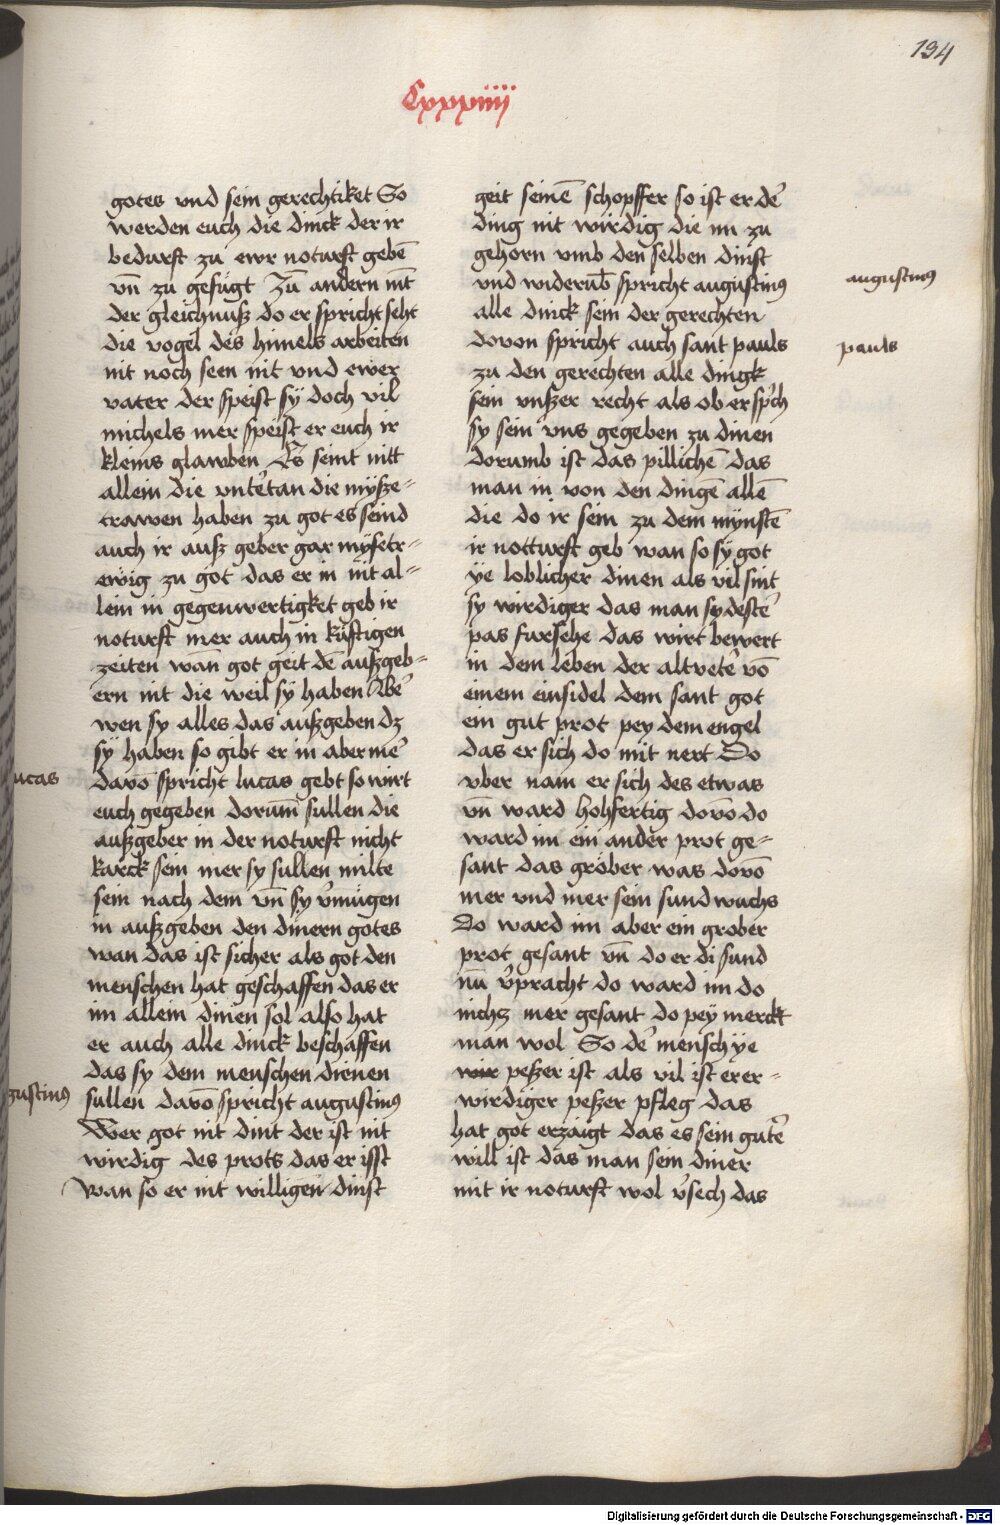 134
Cxxxiiij
gotes vnd sein gerechtiket So
werden euch die dinck der ir
bedurft zu ewr noturft gebē
vn̄ zu gefügt Zū andern mit
der gleichnusz do er spricht seht
die vogel des himels arbeiten
nit noch seen nit vnd ewer
vater der speist sÿ doch vil
michels mer speist er euch ir
kleins glawben Es seint nitt
allein die vnter̄tan die mÿsze⸗
trawen haben zu got es seind
auch ir ausz geber gar mÿsetr⸗
ewig zu got das er in nit al⸗
lein in gegenwertigket geb ir
noturft mer auch in kūftigen
zeiten wan got geit dē auszgeb⸗
ern nit die weil sÿ haben Abe᷑
wen sy alles das auszgeben dz
sÿ haben so gibt er in aber me᷑
davō spricht lucas gebt so wirt
euch gegeben dorum̄ sullen die
auszgeber in der noturft nicht
karck sein mer sy sullen milte
sein nach dem vn̄ sy v᷑mügen
in auszgeben den dinern gotes
wan das ist sicher als got den
menschen hat geschaffen das er
im allein dinen sol also hat
er auch alle dinck beschaffen
das sy dem menschen dienen
sullen davō spricht augustinꝰ
Wer got nit dint der ist nit
wirdig des prots das er isst
Wan so er nit willigen dinst
ucas
gustinꝰ
geit seinē schopffer so ist er de᷑
ding nit wirdig die im zu
gehorn vmb den selben dinst
vnd widerūb spricht augustinꝰ
alle dinck sein der gerechten
dovon spricht auch sant pauls
zu den gerechten alle dingk
sein vnszer recht als ob er sp᷑ch
sy sein vns gegeben zu dinen
dorumb ist das pillichē das
man in von den dingē allē
die do ir sein zu dem mÿnstē
ir notturft geb wan so sÿ got
ÿe loblicher dinen als vil sint
sy wirdiger das man sy deste᷑
pas fursehe das wirt bewert
in dem leben der altvete᷑ vō
einem einsidel dem sant got
ein gut prot pey dem engel
das er sich do mit nert Do
vber nam er sich des etwas
vn̄ ward hohfertig dovō do
ward im ein ander prot ge⸗
sant das gröber was dovō
mer vnd mer sein sund wuchs
Do ward im aber ein grober
prot gesant vn̄ do er di sund
nu v᷑pracht do ward im do
nichtz mer gesant do pey merckt
man wol So de᷑ mensch ÿe
peszer ist als vil ist er er⸗
wirdiger peszer pfleg das
hat got erzaigt das es sein gute᷑
will ist das man sein diner
mit ir noturft wol v᷑sech das
augustinꝰ
pauls
Digitalisierung gefördert durch die Deutsche Forschungsgemeinschaft - DFG